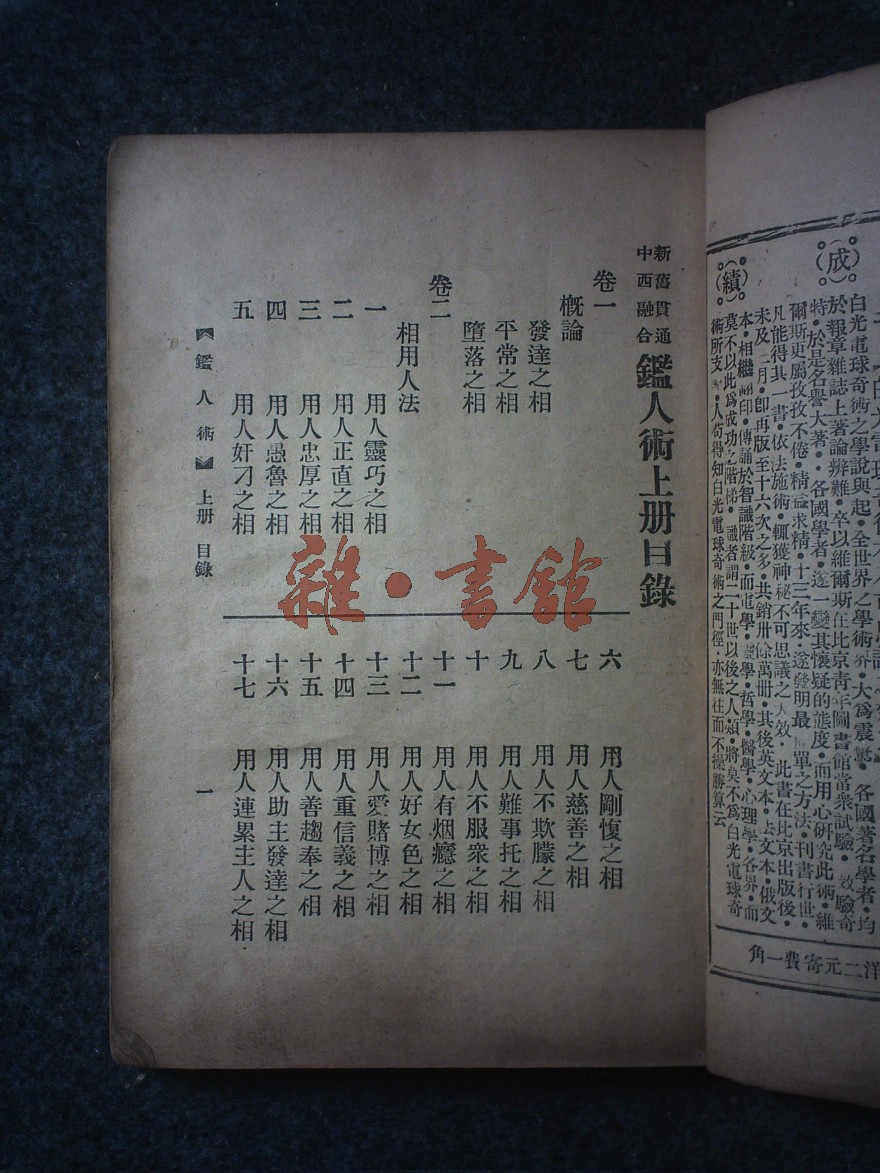 (成)
(績)
白光電球奇術之學說與起●全世界之學術界●大爲震驚●各國著名學者●均
於報章雜誌上著論辨難●卒以維爾斯在比京靑年圖書館當衆試驗●效驗奇
特●於是名譽大著●●各國學者●遂一變其懷疑的態度●而用心研究此術●維
爾斯更屬孜孜不倦●精益求精●十三年來●遂發明最單之方法●刊書行世●
凡能得其一書●依法施術●輒獲神秘不可思議之大效●此書在比京出版後●
未及二月●卽再版至十六次之多●共銷卅餘萬冊●其後英文本●法文本●俄文
本●相繼翻印●傳誦於智識階級●而電學●靈學●哲學●醫學●心理學●各界●而
莫不以此爲成功之階梯●識者謂二十世以後之人類●將莫不爲白光電球奇
術所支●人苟得知白光電球奇術之門徑●亦無往而不操勝算云
洋二元寄費一角
新舊貫通
中西融合
鑑人術上册目錄
卷一
概論
發達之相
平常之相
墮落之相
卷二
相用人法
一 用人靈巧之相
二 用人正直之相
三 用人忠厚之相
四 用人愚魯之相
五 用人奸刁之相
六 用人剛愎之相
七 用人慈善之相
八 用人不欺朦之相
九 用人難事托之相
十 用人不服衆之相
十一 用人有烟癮之相
十二 用人好女色之相
十三 用人愛賭博之相
十四 用人重信義之相
十五 用人善趨奉之相
十六 用人助主發達之相
十七 用人連累主人之相
【鑑人術】 上册 目錄
一
雜·書館